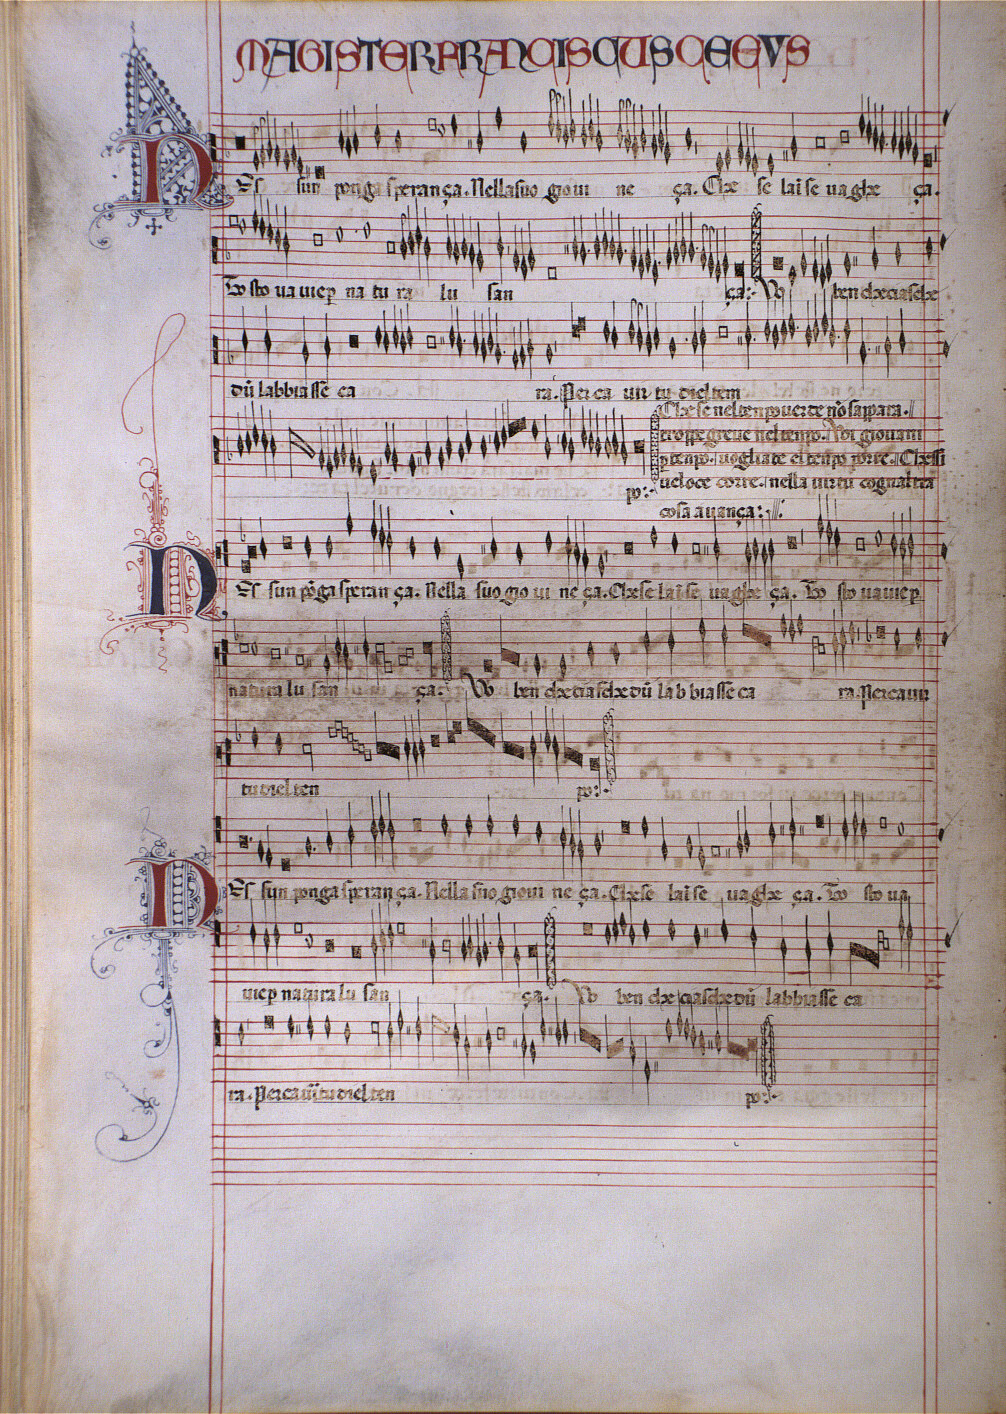 MAGISTER FRANCISCUS CECUS
NEs sun ponga speran ça. Nella suo giovi ne ça. Che se lai se va ghe ça.
Vo sto va vieꝑ na tu ra lu san ça: Vo ben che ciasche
dũ labbiasse ca ra. Per ca un tu diel tem
Che se nel tenpo verde nõ sappara.
troppo greve nel tenpo. Noi giovani
ꝑtenpo. vogliate el tenpo porre. Chessi
po: veloce corre. nella virtu cognaltra
cosa avança:
NEs sun põga speran ça. Nella suo gio vi ne ça. Che se lai se va ghe ça. Vo sto va vieꝑ
natura lu san ça: Vo ben che ciasche dũ lab biasse ca ra. Per ca un
tu diel ten po:
NEs sun ponga speran ça. Nella suo giovi ne ça. Che se lai se va ghe ça. Vo sto va
vieꝑ natura lu san ça. Vo ben che ciasche dũ labbiasse ca
ra. Per ca un tu diel ten po: